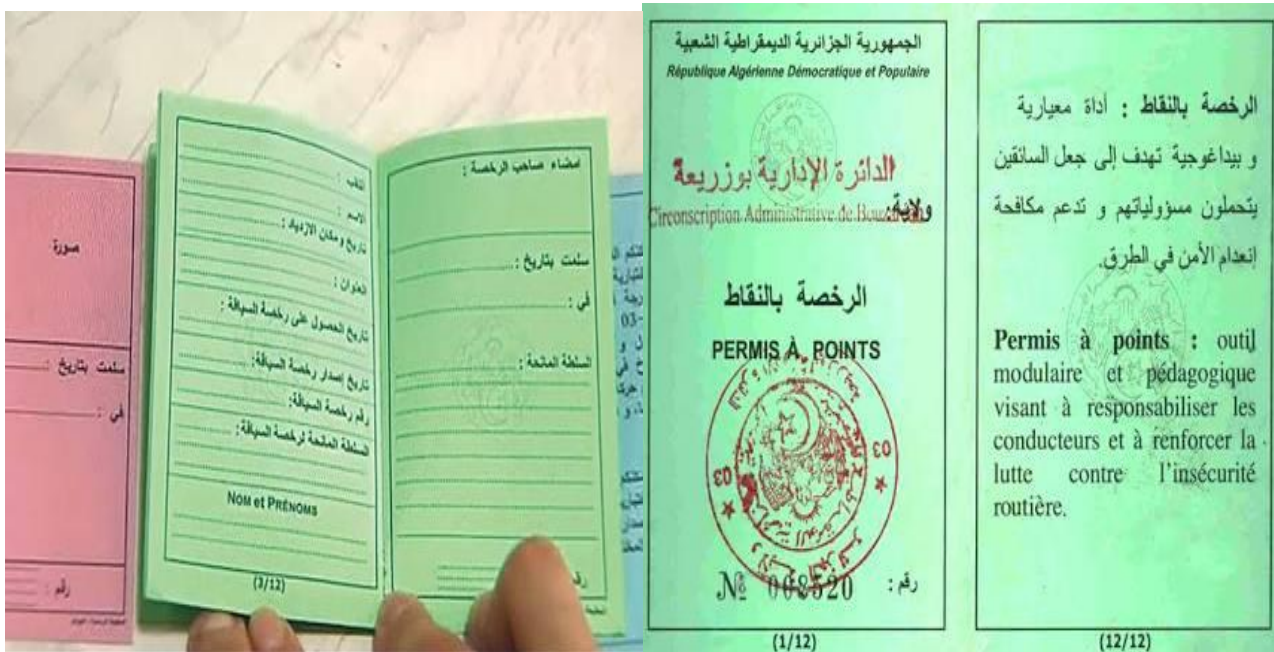 صورة
سلمت بتاريخ :
في :
رقم :
اللقب :
الاسم :
تاريخ ومكان الازدياد :
العنوان :
تاريخ الحصول على رخصة السياقة :
تاريخ إصدار رخصة السياقة:
رقم رخصة السياقة:
السلطة المانحة لرخصة السياقة :
NOM et PRÉNOMS
(3/12)
امضاء صاحب الرخصة :
سلمت بتاريخ :
في :
السلطة المانحة :
رقم
03-
الجمهورية الجزائرية الديمقراطية الشعبية
République Algérienne Démocratique et Populaire
الدائرة الإدارية بوزريعة
ولاية:
Circonscription Administrative de
الرخصة بالنقاط
PERMIS À POINTS
03
03
رقم : № 008520
(1/12)
الرخصة بالنقاط : أداة معيارية
و بيداغوجية تهدف إلى جعل السائقين
يتحملون مسؤولياتهم و تدعم مكافحة
إنعدام الأمن في الطرق.
Permis à points : outil
modulaire et pédagogique
visant à responsabiliser les
conducteurs et à renforcer la
lutte contre l'insécurité
routière.
(12/12)